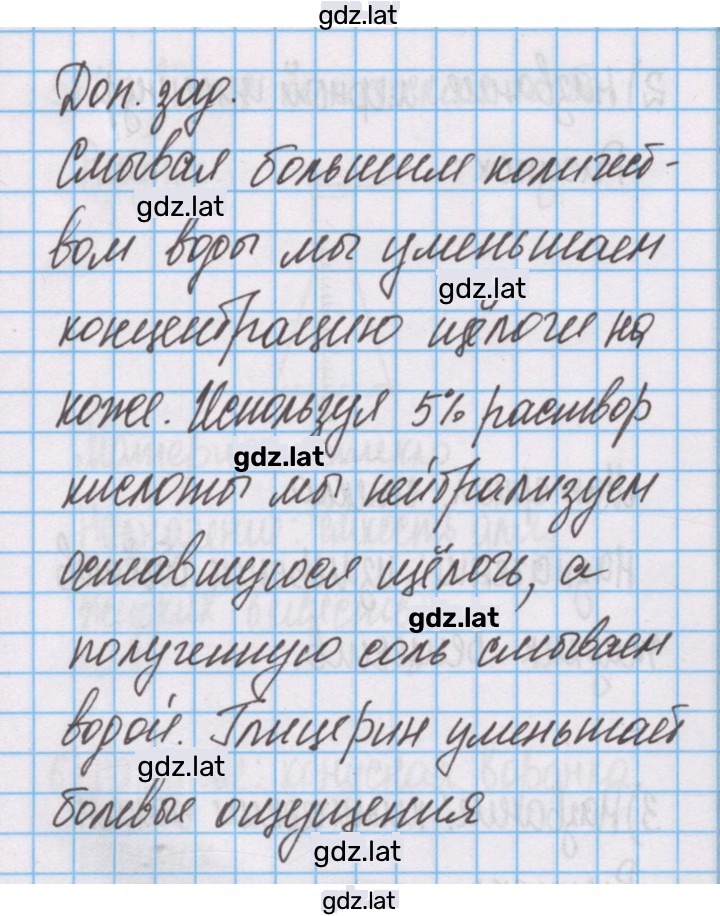 gdz.lat
Доп. зад.
Смывая большим количест-
gdz.lat
вом воды мы уменьшаем
gdz.lat
концентрацию щёлочи на
коже. Используя 5% раствор
gdz.lat
кислоты мы нейтрализуем
оставшуюся щёлочь, а
gdz.lat
полученную соль смываем
водой. Глицерин уменьшает
gdz.lat
болевые ощущения
gdz.lat
gdz.lat